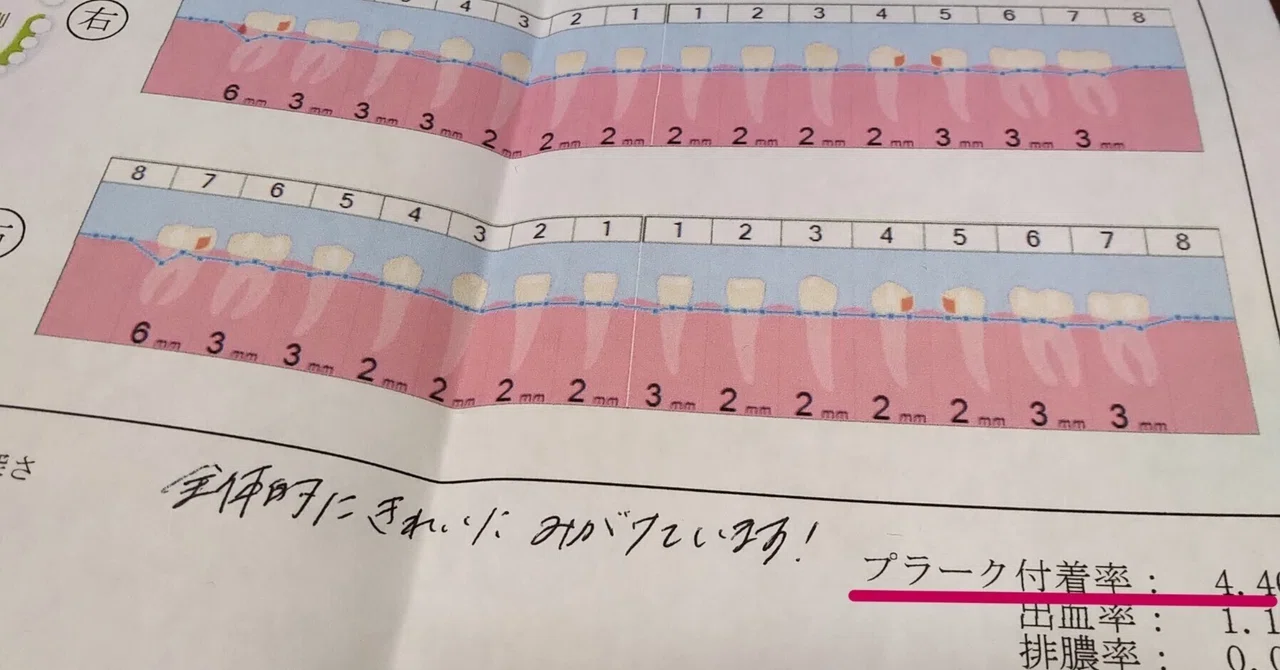 右
4 3 2 1 1 2 3 4 5 6 7 8
6mm 3mm 3mm 3mm 2mm 2mm 2mm 2mm 2mm 2mm 2mm 3mm 3mm 3mm
8 7 6 5 4 3 2 1 1 2 3 4 5 6 7 8
6mm 3mm 3mm 2mm 2mm 2mm 2mm 3mm 2mm 2mm 2mm 2mm 3mm 3mm
さ
全体的にきれいにみがけています!
プラーク付着率: 4.4
出血率: 1.1
排膿率: 0.0